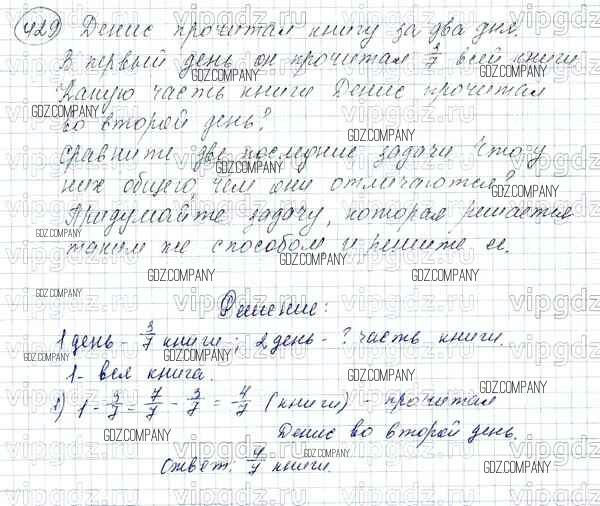 429) Денис прочитал книгу за два дня.
В первый день он прочитал 3/7 всей книги.
Какую часть книги Денис прочитал
во второй день?
Сравните две последние задачи. Что у
них общего, чем они отличаются?
Придумайте задачу, которая решается
таким же способом и решите ее.
Решение:
1 день - 3/7 книги; 2 день - ? часть книги.
1 - вся книга.
1) 1 - 3/7 = 7/7 - 3/7 = 4/7 (книги) - прочитал
Денис во второй день.
Ответ: 4/7 книги.